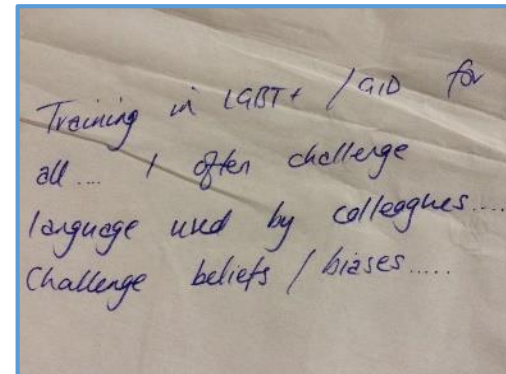 Training in LGBT+ / GID for
all.... I often challenge
language used by colleagues....
Challenge beliefs / biases.....